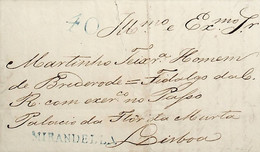 40
Il.mo e Ex.mo Sr
Martinho Teix.ra Homem
de Brederode = Fidalgo da C.
R. com exer.co no Passo
Palacio da Flor da Murta
Lisboa
MIRANDELLA